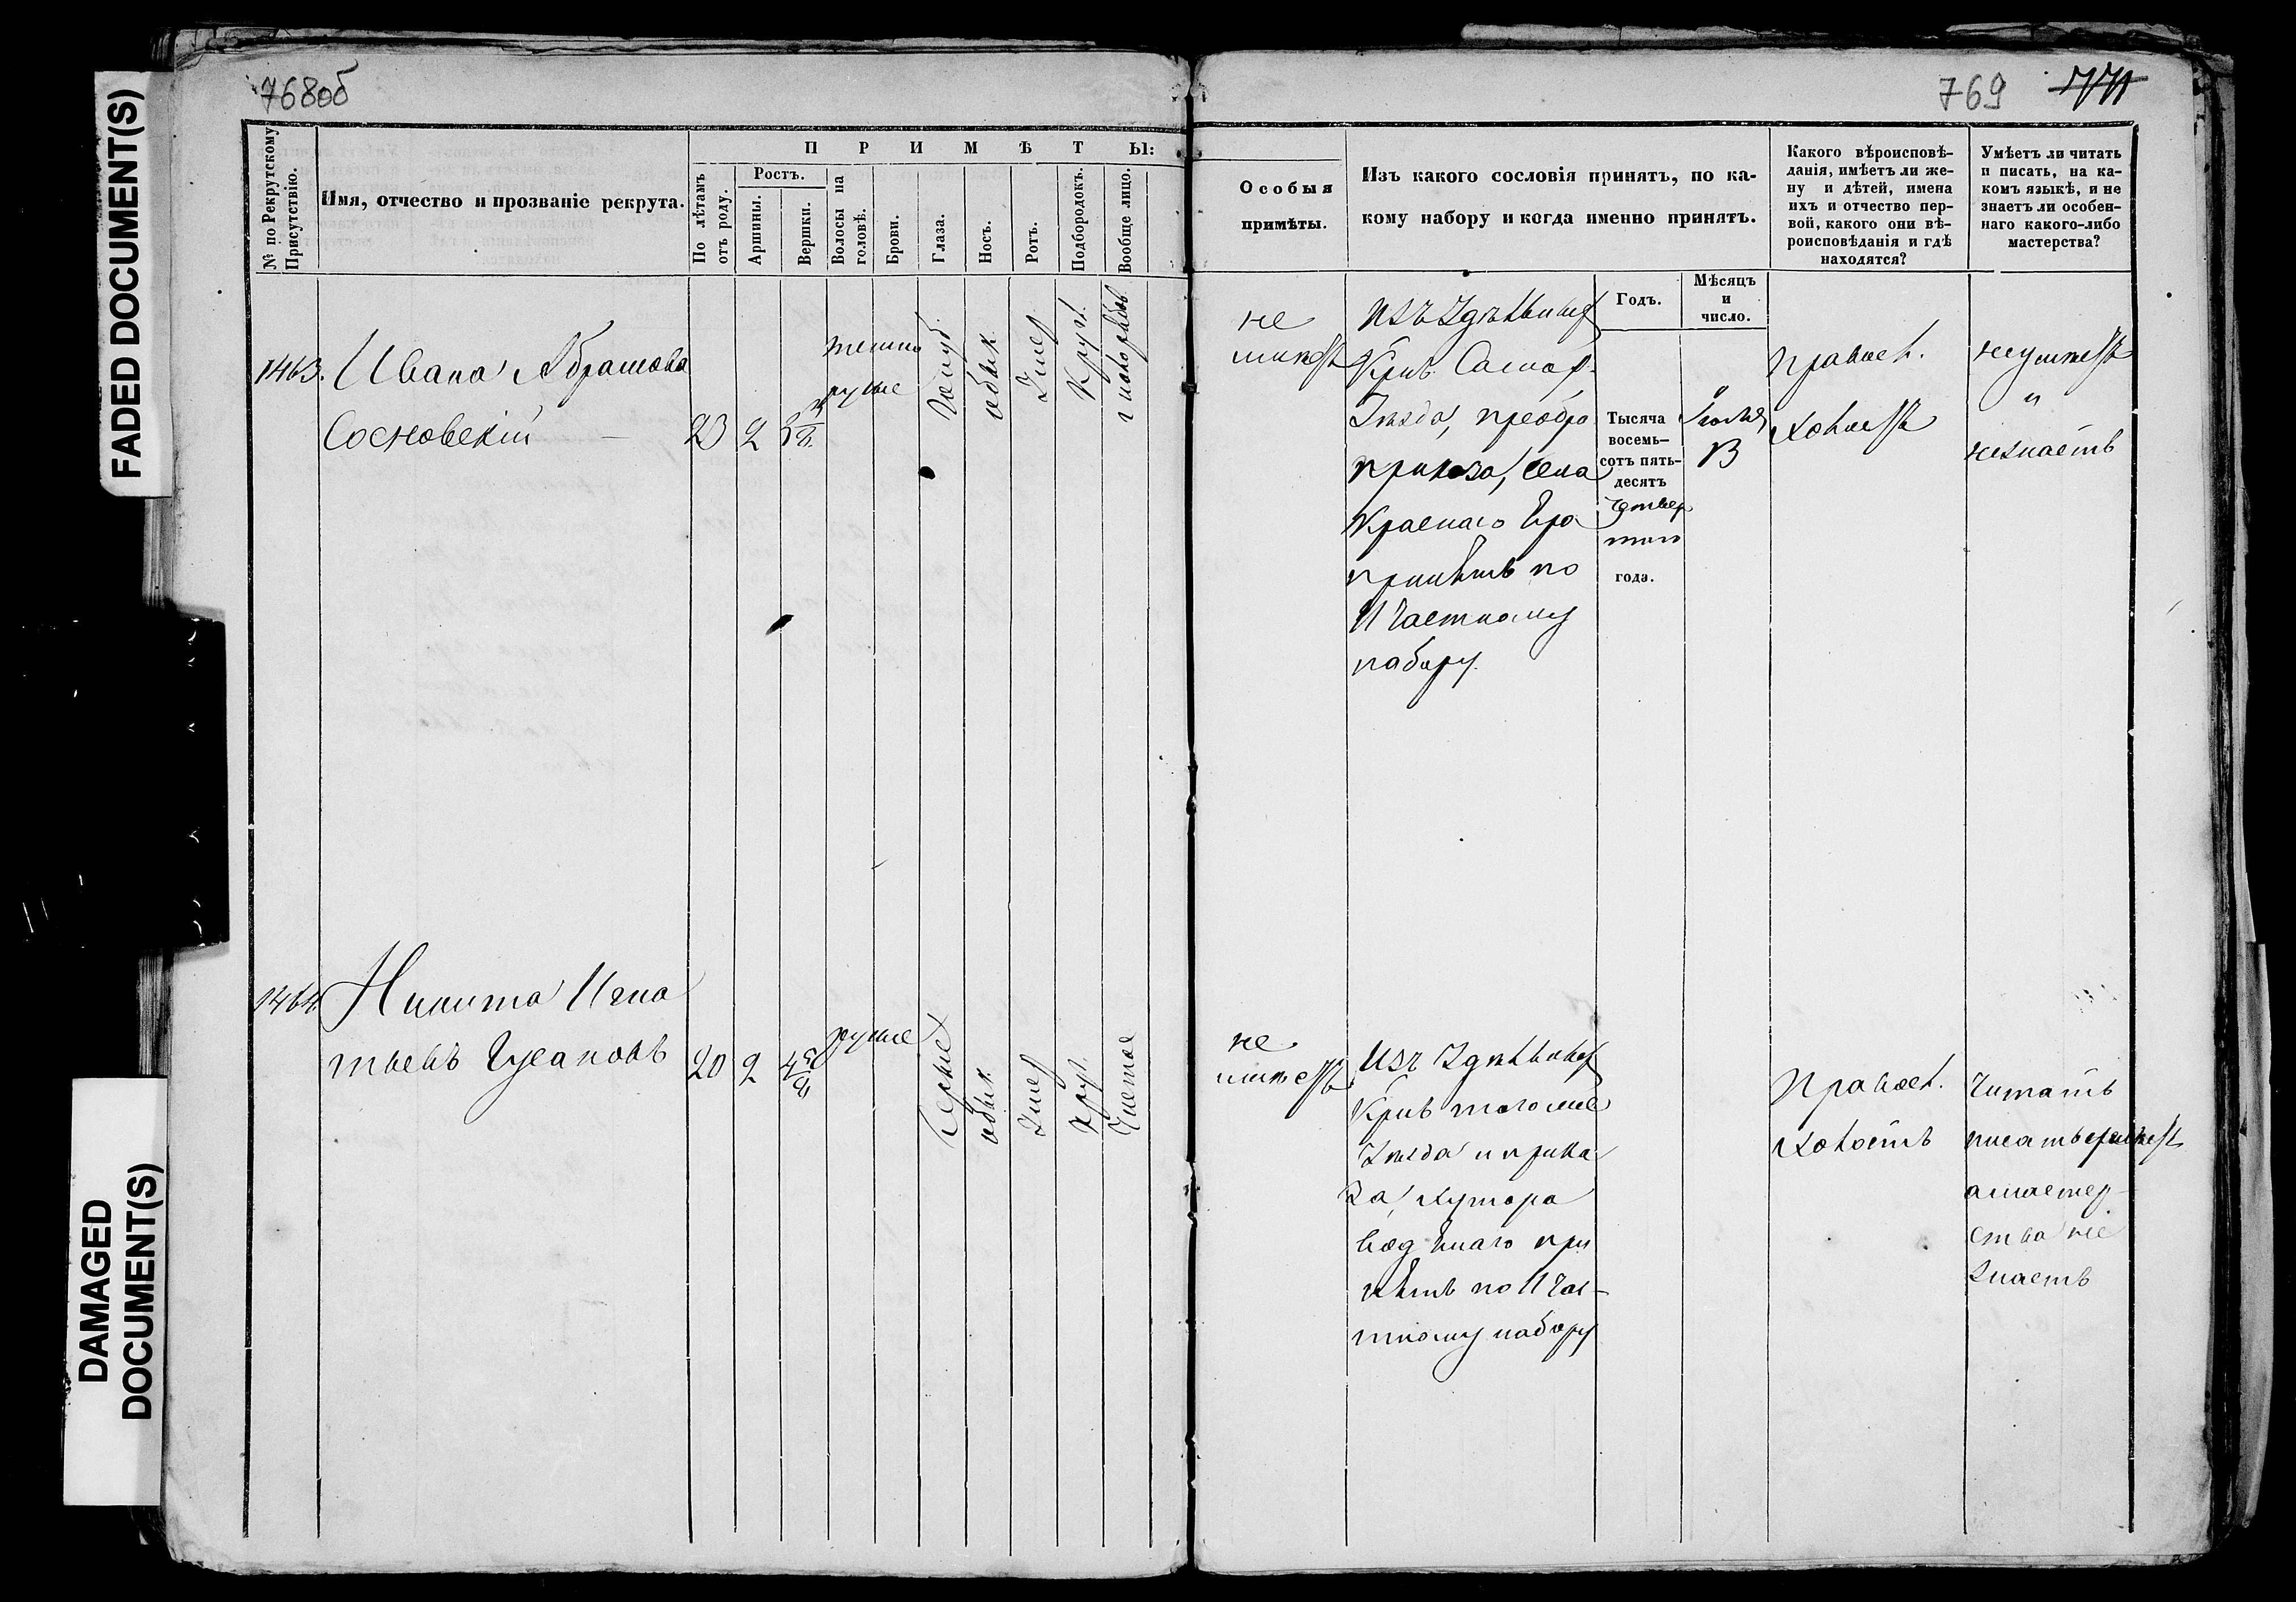 FADED DOCUMENT(S)
DAMAGED
DOCUMENT(S)
768об
№ по Рекрутскому
Присутствію.
Имя, отчество и прозваніе рекрута.
П Р И М Ѣ Т Ы:
По лѣтамъ
отъ роду.
Ростъ.
Аршины.
Вершки.
Волосы на
головѣ.
Брови.
Глаза.
Носъ.
Ротъ.
Подбородокъ.
Вообще лицо.
1463.
Ивана Абрамова
Сосновскій
23
2
темно
русые
голуб.
обык.
Умер
Кругл.
1464
Никита Игна
тьевъ Гусаковъ
20
2
русые
Серые
обык
Умер
Круг.
Чистое
769
771
Особыя
примѣты.
Изъ какого сословія принятъ, по ка-
кому набору и когда именно принятъ.
Какого вѣроисповѣ-
данія, имѣетъ ли же-
ну и дѣтей, имена
ихъ и отчество пер-
вой, какого они вѣ-
роисповѣданія и гдѣ
находятся?
Умѣетъ ли читать
и писать, на ка-
комъ языкѣ, и не
знаетъ ли особен-
наго какого-либо
мастерства?
Годъ.
Мѣсяцъ
и
число.
не
имѣетъ
Изъ Удѣльных
Крив Самар.
Уѣзда, преобра
приказа, села
Краснаго Яра
принятъ по
11 Частному
набору.
Тысяча
восемь-
сотъ пять-
десятъ
четвер
таго
года.
Іюля
13
Правосл.
холостъ
неумѣетъ
"
незнаетъ
не
имѣетъ
Изъ Удѣльных
Крив того же
Уѣзда и прика
за, хутора
Водянаго при
нятъ по 11 Час-
тному набору
Правосл.
холостъ
Читать
писать умѣетъ
а мастер-
ства не
знаетъ